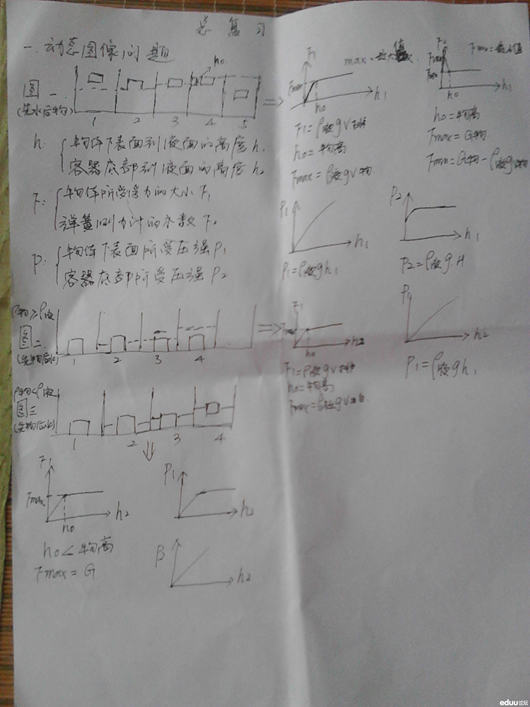 总复习
一.动态图像问题
图一
(先水后物)
h0
1 2 3 4 5
h: 物体下表面到液面的高度h1
容器底部到液面的高度h2
F: 物体所受浮力的大小F1
弹簧测力计的示数F2
P: 物体下表面所受压强P1
容器底部所受压强P2
F1
max
Fmax
h0
h1
F1=ρ液gV排
h0=物高
Fmax=ρ液gV物
F2
h0
h1
h0=物高
Fmax=G物
Fmin=G物-ρ液gV物
P1
h1
P1=ρ液gh1
P2
h1
P2=ρ液gH
ρ物≥ρ液
图二
(先物后水)
1 2 3 4
F1
h0
h2
F1=ρ液gV排
h0=物高
Fmax=ρ液gV物
P1
h2
P1=ρ液gh1
ρ物<ρ液
图三
(先物后水)
1 2 3 4
F1
Fmax
h0
h2
h0<物高
Fmax=G
P1
h2
h2
eduu